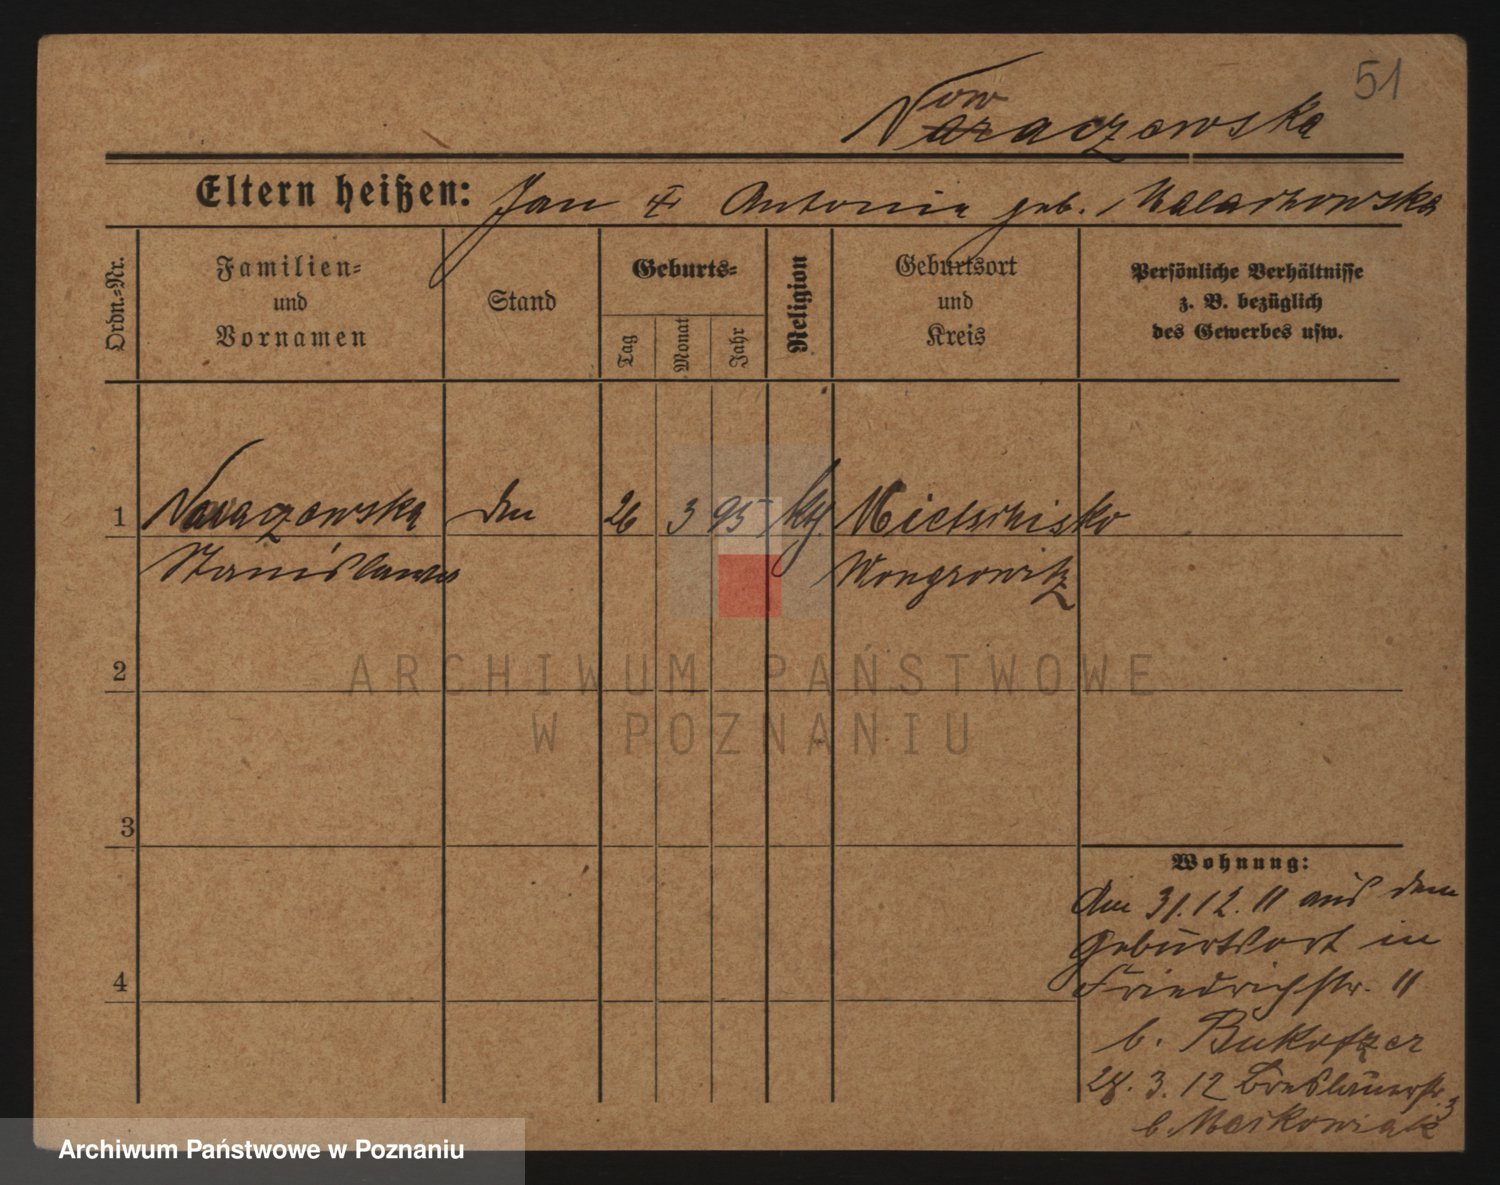 51
ow
Naraczewska
Eltern heißen: Jan & Antonie geb. Malachowska
Ordn.-Nr.
Familien-
und
Vornamen
Stand
Geburts-
Tag
Monat
Jahr
Religion
Geburtsort
und
Kreis
Persönliche Verhältnisse
z. B. bezüglich
des Gewerbes usw.
1
Nowaczewska
26
3
95
kth.
Mietschisko
Stanislawa
Wongrowitz
ARCHIWUM PAŃSTWOWE
W POZNANIU
2
3
4
Wohnung:
Am 31.12.11 aus dem
Geburtsort in
Friedrichstr. 11
b. Bukofzer
28.3.12 Breslauerstr. 3
b. Maikowiak
Archiwum Państwowe w Poznaniu